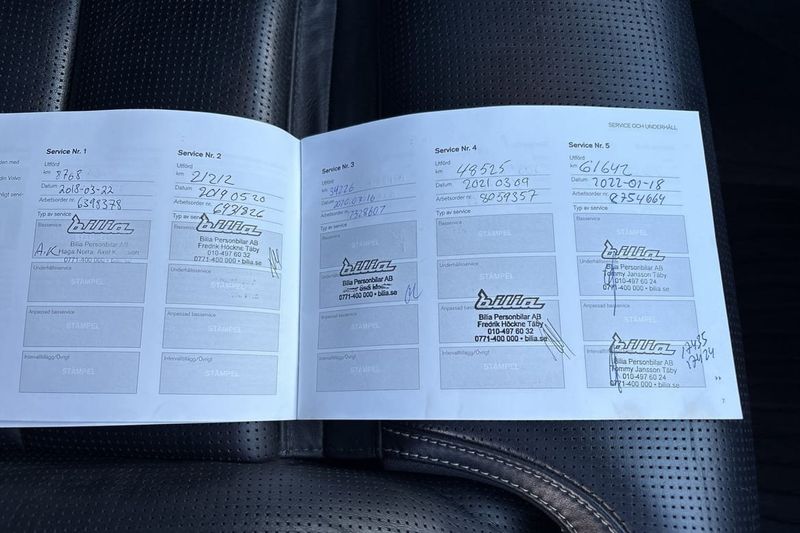 SERVICE OCH UNDERHÅLL
Service Nr. 1
Utförd
km 8768
Datum 2018-03-22
Arbetsorder nr. 6398378
Typ av service
Basservice
bilia
Bilia Personbilar AB
Haga Norra,
0771-400 000 • bilia.se
A.K
Underhållsservice
STÄMPEL
Anpassad basservice
STÄMPEL
Intervalltillägg/Övrigt
STÄMPEL
Service Nr. 2
Utförd
km 21212
Datum 2019 05 20
Arbetsorder nr. 6931826
Typ av service
Basservice
bilia
Bilia Personbilar AB
Fredrik Höckne Täby
010-497 60 32
0771-400 000 • bilia.se
Underhållsservice
Anpassad basservice
STÄMPEL
Intervalltillägg/Övrigt
STÄMPEL
Service Nr. 3
Utförd
km 34226
Datum
Arbetsorder nr. 7328607
Typ av service
Basservice
STÄMPEL
bilia
Bilia Personbilar AB
0771-400 000 • bilia.se
Anpassad basservice
STÄMPEL
Intervalltillägg/Övrigt
STÄMPEL
Service Nr. 4
Utförd
km 48525
Datum 2021 03 09
Arbetsorder nr. 8059357
Typ av service
Basservice
STÄMPEL
Underhållsservice
STÄMPEL
bilia
Bilia Personbilar AB
Fredrik Höckne Täby
010-497 60 32
0771-400 000 • bilia.se
Intervalltillägg/Övrigt
STÄMPEL
Service Nr. 5
Utförd
km 61642
Datum 2022-01-18
Arbetsorder nr. 8754664
Typ av service
Basservice
STÄMPEL
bilia
Bilia Personbilar AB
Tommy Jansson Täby
010-497 60 24
0771-400 000 • bilia.se
Anpassad basservice
STÄMPEL
bilia
Bilia Personbilar AB
Tommy Jansson Täby
010-497 60 24
0771-400 000 • bilia.se
17435
17424
7